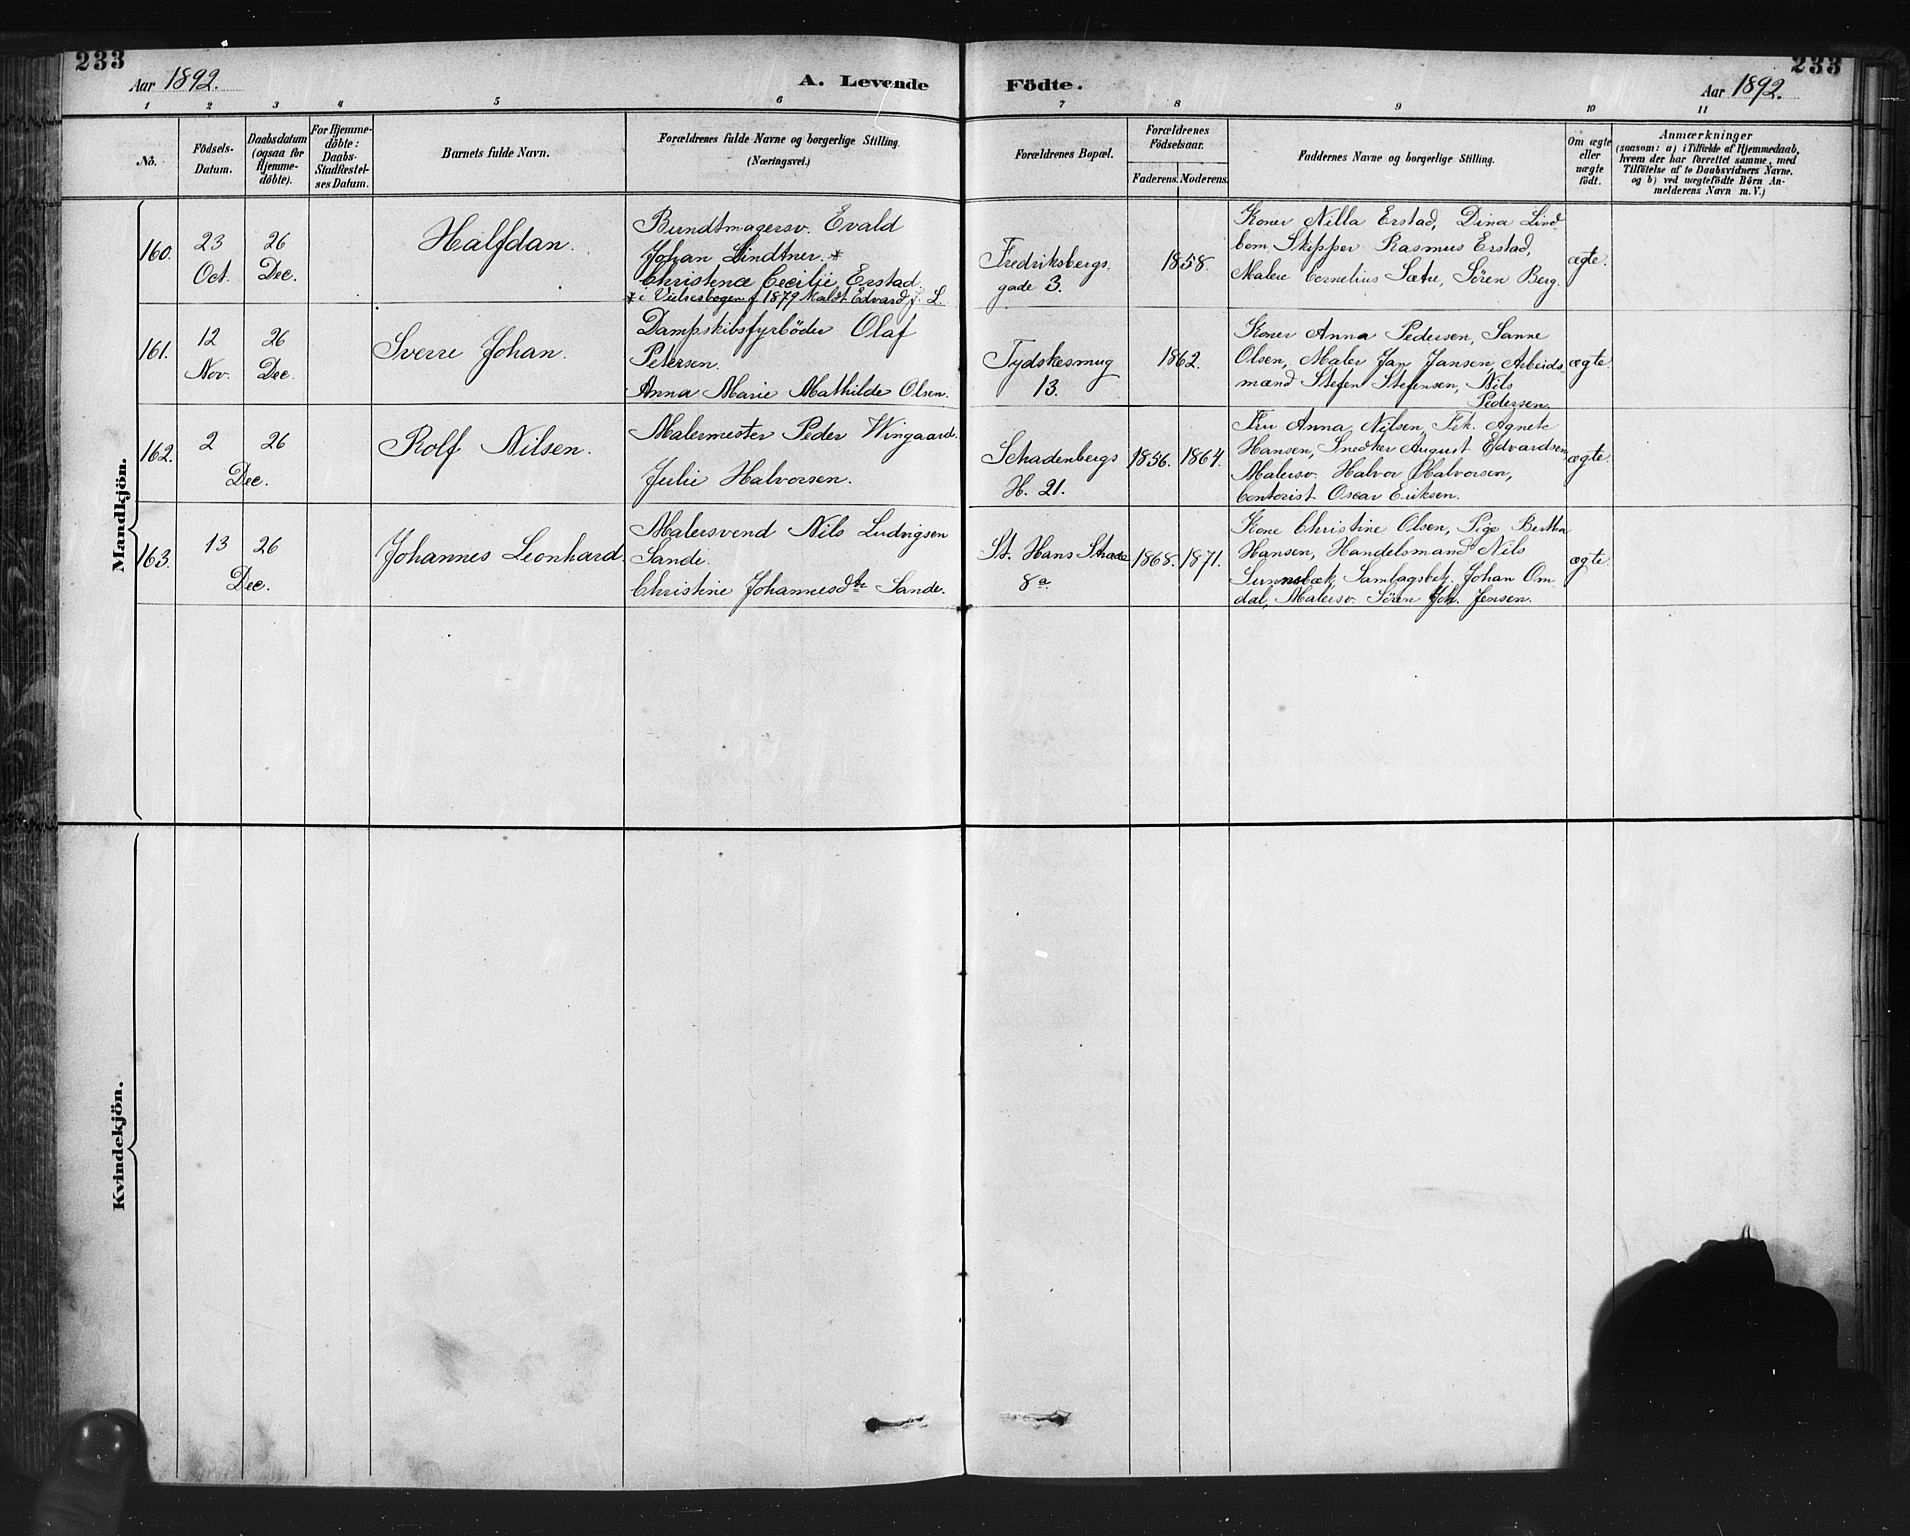 233
233
Aar 1892.
A. Levende
Födte.
Aar 1892.
1 2 3 4 5 6 7 8 9 10 11
No.
Födsels-
Datum.
Daabsdatum
(ogsaa for
Hjemme-
döbte).
For Hjemme-
döbte:
Daabs-
Stadfæstel-
ses Datum.
Barnets fulde Navn.
Forældrenes fulde Navne og borgerlige Stilling.
(Næringsvei.)
Forældrenes Bopæl.
Forældrenes
Födselsaar.
Faderens. Moderens.
Faddernes Navne og borgerlige Stilling.
Om ægte
eller
uægte
födt.
Anmærkninger
(saasom: a) i Tilfælde af Hjemmedaab,
hvem der har forrettet samme, med
Tilföielse af to Daabsvidners Navne,
og b) ved uægtefödte Börn An-
melderens Navn m. V.)
Mandkjön.
160.
23
Oct.
26
Dec.
Halfdan.
Bundtmagersv. Evald
Johan Lindtner.*
Christence Cecilie Erstad.
* i Vielsesbogen f 1879 kaldt Edvard J. L.
Fredriksbergs
gade 3.
1858.
Koner Nilla Erstad, Dina Lind
bom Skipper Rasmus Erstad,
Malere Cornelius Sætre, Sören Berg.
ægte.
161.
12
Nov.
26
Dec.
Sverre Johan.
Dampskibsfyrböder Olaf
Petersen.
Anna Marie Mathilde Olsen.
Tydskesmug
13.
1862.
Koner Anna Pedersen, Sanne
Olsen, Maler Jan Jansen, Arbeids-
mænd Stefen Stefensen, Nils
Pedersen.
ægte
162.
2
Dec.
26
Rolf Nilsen.
Malermester Peder Wingaard.
Julie Halvorsen.
Schadenbergs
H. 21.
1856. 1864.
Fru Anna Nilsen, Frk. Agnete
Hansen, Snedker August Edvardsen,
Malersv. Halvor Halvorsen,
Contorist Oscar Eriksen.
ægte.
163.
13
Dec.
26
Johannes Leonhard.
Malersvend Nils Ludvigsen
Sande.
Christine Johannesdtr Sande.
St. Hans Strade
8a
1868. 1871.
Kone Christine Olsen, Pige Bertha
Hansen, Handelsmand Nils
Sunnsbæk, Samlagsbetj. Johan Om-
dal, Malersv. Sören Joh. Jensen.
ægte
Kvindekjön.